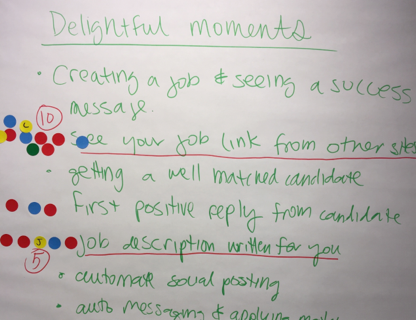 Delightful moments
• Creating a job & seeing a success
message.
10
See your job link from other sites
• getting a well matched candidate
First positive reply from candidate
Job description written for you
5
• automate social posting
• auto messaging & applying